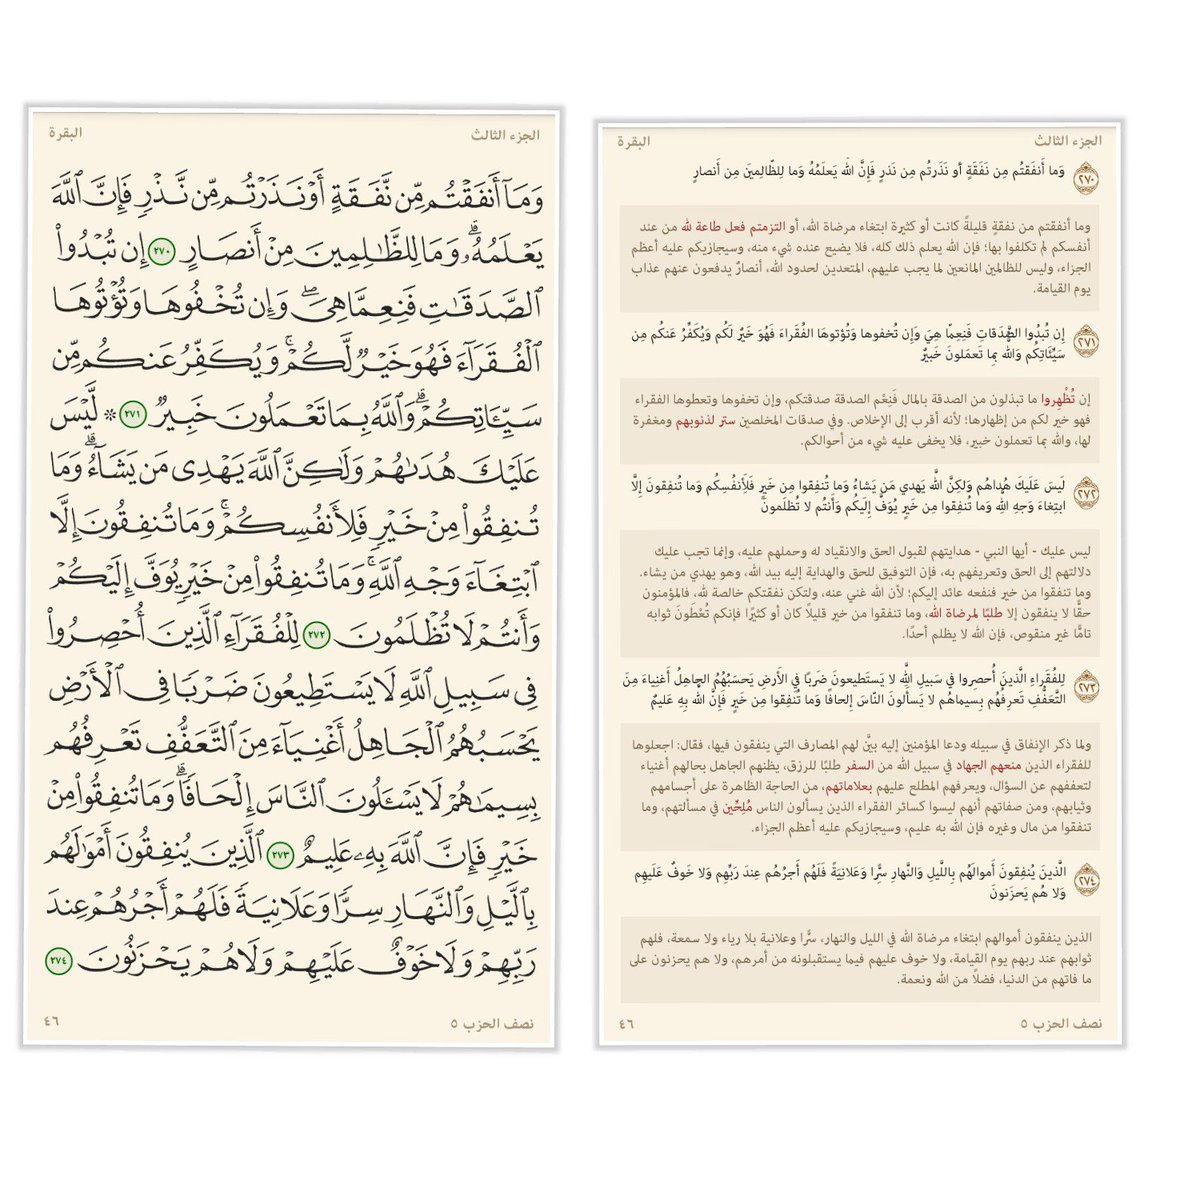 الجزء الثالث البقرة
٢٧٠ وَما أَنفَقتُم مِن نَفَقَةٍ أَو نَذَرتُم مِن نَذرٍ فَإِنَّ اللَّهَ يَعلَمُهُ وَما لِلظّالِمينَ مِن أَنصارٍ
وما أنفقتم من نفقةٍ قليلةً كانت أو كثيرة ابتغاء مرضاة الله، أو التزمتم فعل طاعة لله من عند
أنفسكم لم تكلفوا بها؛ فإن الله يعلم ذلك كله، فلا يضيع عنده شيء منه، وسيجازيكم عليه أعظم
الجزاء، وليس للظالمين المانعين لما يجب عليهم، المتعدين لحدود الله، أنصارٌ يدفعون عنهم عذاب
يوم القيامة.
٢٧١ إِن تُبدُوا الصَّدَقاتِ فَنِعِمّا هِيَ وَإِن تُخفوها وَتُؤتوهَا الفُقَراءَ فَهُوَ خَيرٌ لَكُم وَيُكَفِّرُ عَنكُم مِن
سَيِّئَاتِكُم وَاللَّهُ بِما تَعمَلونَ خَبيرٌ
إن تُظْهِروا ما تبذلون من الصدقة بالمال فَنِعْم الصدقة صدقتكم، وإن تخفوها وتعطوها الفقراء
فهو خير لكم من إظهارها؛ لأنه أقرب إلى الإخلاص. وفي صدقات المخلصين ستر لذنوبهم ومغفرة
لها، والله بما تعملون خبير، فلا يخفى عليه شيء من أحوالكم.
٢٧٢ لَيسَ عَلَيكَ هُداهُم وَلكِنَّ اللَّهَ يَهدي مَن يَشاءُ وَما تُنفِقوا مِن خَيرٍ فَلِأَنفُسِكُم وَما تُنفِقونَ إِلَّا
ابتِغاءَ وَجهِ اللَّهِ وَما تُنفِقوا مِن خَيرٍ يُوَفَّ إِلَيكُم وَأَنتُم لا تُظلَمونَ
ليس عليك - أيها النبي - هدايتهم لقبول الحق والانقياد له وحملهم عليه، وإنما تجب عليك
دلالتهم إلى الحق وتعريفهم به، فإن التوفيق للحق والهداية إليه بيد الله، وهو يهدي من يشاء.
وما تنفقوا من خير فنفعه عائد إليكم؛ لأن الله غني عنه، ولتكن نفقتكم خالصة لله، فالمؤمنون
حقًّا لا ينفقون إلا طلبًا لمرضاة الله، وما تنفقوا من خير قليلًا كان أو كثيرًا فإنكم تُعْطَونَ ثوابه
تامًّا غير منقوص، فإن الله لا يظلم أحدًا.
٢٧٣ لِلفُقَراءِ الَّذينَ أُحصِروا في سَبيلِ اللَّهِ لا يَستَطيعونَ ضَربًا فِي الأَرضِ يَحسَبُهُمُ الجاهِلُ أَغنِياءَ مِنَ
التَّعَفُّفِ تَعرِفُهُم بِسيماهُم لا يَسأَلونَ النّاسَ إِلحافًا وَما تُنفِقوا مِن خَيرٍ فَإِنَّ اللَّهَ بِهِ عَليمٌ
ولما ذكر الإنفاق في سبيله ودعا المؤمنين إليه بيَّن لهم المصارف التي ينفقون فيها، فقال: اجعلوها
للفقراء الذين منعهم الجهاد في سبيل الله من السفر طلبًا للرزق، يظنهم الجاهل بحالهم أغنياء
لتعففهم عن السؤال، ويعرفهم المطلع عليهم بعلاماتهم، من الحاجة الظاهرة على أجسامهم
وثيابهم، ومن صفاتهم أنهم ليسوا كسائر الفقراء الذين يسألون الناس مُلِحِّين في مسألتهم، وما
تنفقوا من مال وغيره فإن الله به عليم، وسيجازيكم عليه أعظم الجزاء.
٢٧٤ الَّذينَ يُنفِقونَ أَموالَهُم بِاللَّيلِ وَالنَّهارِ سِرًّا وَعَلانِيَةً فَلَهُم أَجرُهُم عِندَ رَبِّهِم وَلا خَوفٌ عَلَيهِم
وَلا هُم يَحزَنونَ
الذين ينفقون أموالهم ابتغاء مرضاة الله في الليل والنهار، سرًّا وعلانية بلا رياء ولا سمعة، فلهم
ثوابهم عند ربهم يوم القيامة، ولا خوف عليهم فيما يستقبلونه من أمرهم، ولا هم يحزنون على
ما فاتهم من الدنيا، فضلًا من الله ونعمة.
نصف الحزب ٥ ٤٦
الجزء الثالث البقرة
وَمَآ أَنفَقۡتُم مِّن نَّفَقَةٍ أَوۡ نَذَرۡتُم مِّن نَّذۡرٖ فَإِنَّ ٱللَّهَ
يَعۡلَمُهُۥۗ وَمَا لِلظَّٰلِمِينَ مِنۡ أَنصَارٍ ٢٧٠ إِن تُبۡدُواْ
ٱلصَّدَقَٰتِ فَنِعِمَّا هِيَۖ وَإِن تُخۡفُوهَا وَتُؤۡتُوهَا
ٱلۡفُقَرَآءَ فَهُوَ خَيۡرٞ لَّكُمۡۚ وَيُكَفِّرُ عَنكُم مِّن
سَيِّـَٔاتِكُمۡۗ وَٱللَّهُ بِمَا تَعۡمَلُونَ خَبِيرٞ ٢٧١ ۞ لَّيۡسَ
عَلَيۡكَ هُدَىٰهُمۡ وَلَٰكِنَّ ٱللَّهَ يَهۡدِي مَن يَشَآءُۗ وَمَا
تُنفِقُواْ مِنۡ خَيۡرٖ فَلِأَنفُسِكُمۡۚ وَمَا تُنفِقُونَ إِلَّا
ٱبۡتِغَآءَ وَجۡهِ ٱللَّهِۚ وَمَا تُنفِقُواْ مِنۡ خَيۡرٖ يُوَفَّ إِلَيۡكُمۡ
وَأَنتُمۡ لَا تُظۡلَمُونَ ٢٧٢ لِلۡفُقَرَآءِ ٱلَّذِينَ أُحۡصِرُواْ
فِي سَبِيلِ ٱللَّهِ لَا يَسۡتَطِيعُونَ ضَرۡبٗا فِي ٱلۡأَرۡضِ
يَحۡسَبُهُمُ ٱلۡجَاهِلُ أَغۡنِيَآءَ مِنَ ٱلتَّعَفُّفِ تَعۡرِفُهُم
بِسِيمَٰهُمۡ لَا يَسۡـَٔلُونَ ٱلنَّاسَ إِلۡحَافٗاۗ وَمَا تُنفِقُواْ مِنۡ
خَيۡرٖ فَإِنَّ ٱللَّهَ بِهِۦ عَلِيمٌ ٢٧٣ ٱلَّذِينَ يُنفِقُونَ أَمۡوَٰلَهُم
بِٱلَّيۡلِ وَٱلنَّهَارِ سِرّٗا وَعَلَانِيَةٗ فَلَهُمۡ أَجۡرُهُمۡ عِندَ
رَبِّهِمۡ وَلَا خَوۡفٌ عَلَيۡهِمۡ وَلَا هُمۡ يَحۡزَنُونَ ٢٧٤
نصف الحزب ٥ ٤٦